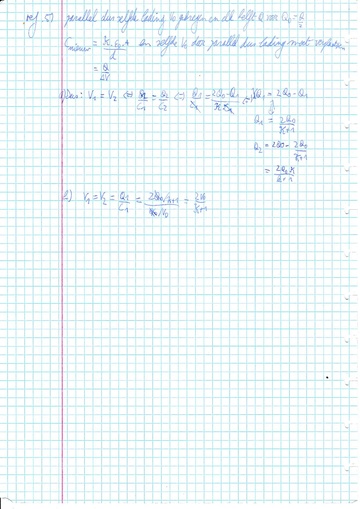 oef 51 parallel dus zelfde lading V₀ en elk helft Q voor Q₀ = Q/2
C nieuw = κ·ε₀·A / d en zelfde V₀ door parallel dus lading moet
= Q / ΔV
a) Dus: V₁ = V₂ ⇔ Q₁/C₁ = Q₂/C₂ ⇔ Q₁/C₀ = (2Q₀ - Q₁)/(κC₀) ⇔ κQ₁ = 2Q₀ - Q₁
Q₁ = 2Q₀/(κ+1)
Q₂ = 2Q₀ - 2Q₀/(κ+1)
= 2Q₀κ/(κ+1)
b) V₁ = V₂ = Q₁/C₁ = (2Q₀/κ+1)/(Q₀/V₀) = 2V₀/(κ+1)